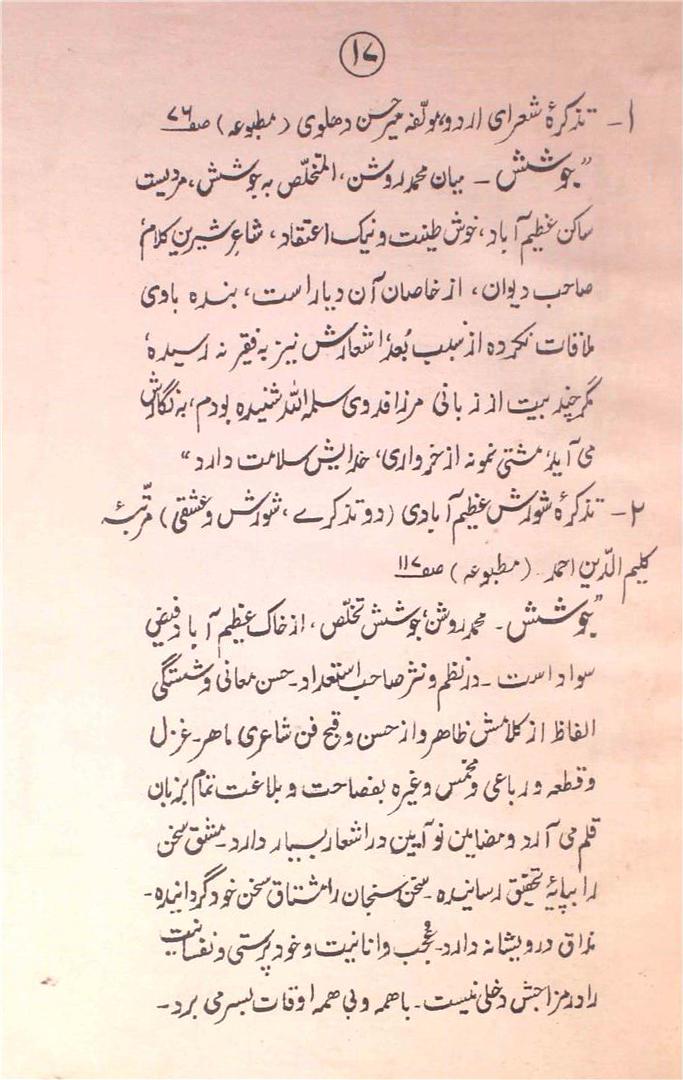 ۱۷
۱- تذکرهٔ شعرای اردو، مولّفه میر حسن دهلوی (مطبوعه) صفـ ۷۶
”جوشش - میان محمد روشن، المتخلّص به جوشش، مردیست
ساکن عظیم آباد، خوش طینت و نیک اعتقاد، شاعر شیرین کلام،
صاحب دیوان، از خاصان آن دیار است، بنده باوی
ملاقات نکرده از سبب بُعد، اشعارش نیز به فقیر نه رسیده،
مگر چند بیت از زبانی مرزا فدوی سلمه الله شنیده بودم، به نگارش
می آید، مشتی نمونه از خرواری، خدایش سلامت دارد“
۲- تذکرهٔ شورش عظیم آبادی (دو تذکرے، شورش و عشقی) مرتّبهٔ
کلیم الدّین احمد (مطبوعه) صفـ ۱۱۷
”جوشش - محمد روشن، جوشش تخلّص، از خاک عظیم آباد فیض
سواد است - در نظم و نثر صاحب استعداد - حسن معانی و شستگی
الفاظ از کلامش ظاهر و از حسن و قبح فن شاعری ماهر - غزل
و قطعه و رباعی و مخمس و غیره بفصاحت و بلاغت تمام بزبان
قلم می آرد و مضامین نو آیین در اشعار بسیار دارد - مشق سخن
را بپایهٔ تحقیق رسانیده - سخن سنجان را مشتاق سخن خود گردانیده -
مذاق درویشانه دارد - عُجب و انانیت و خود پرستی و نفسانیت
را در مزاجش دخلی نیست - با همه و بی همه اوقات بسر می برد -